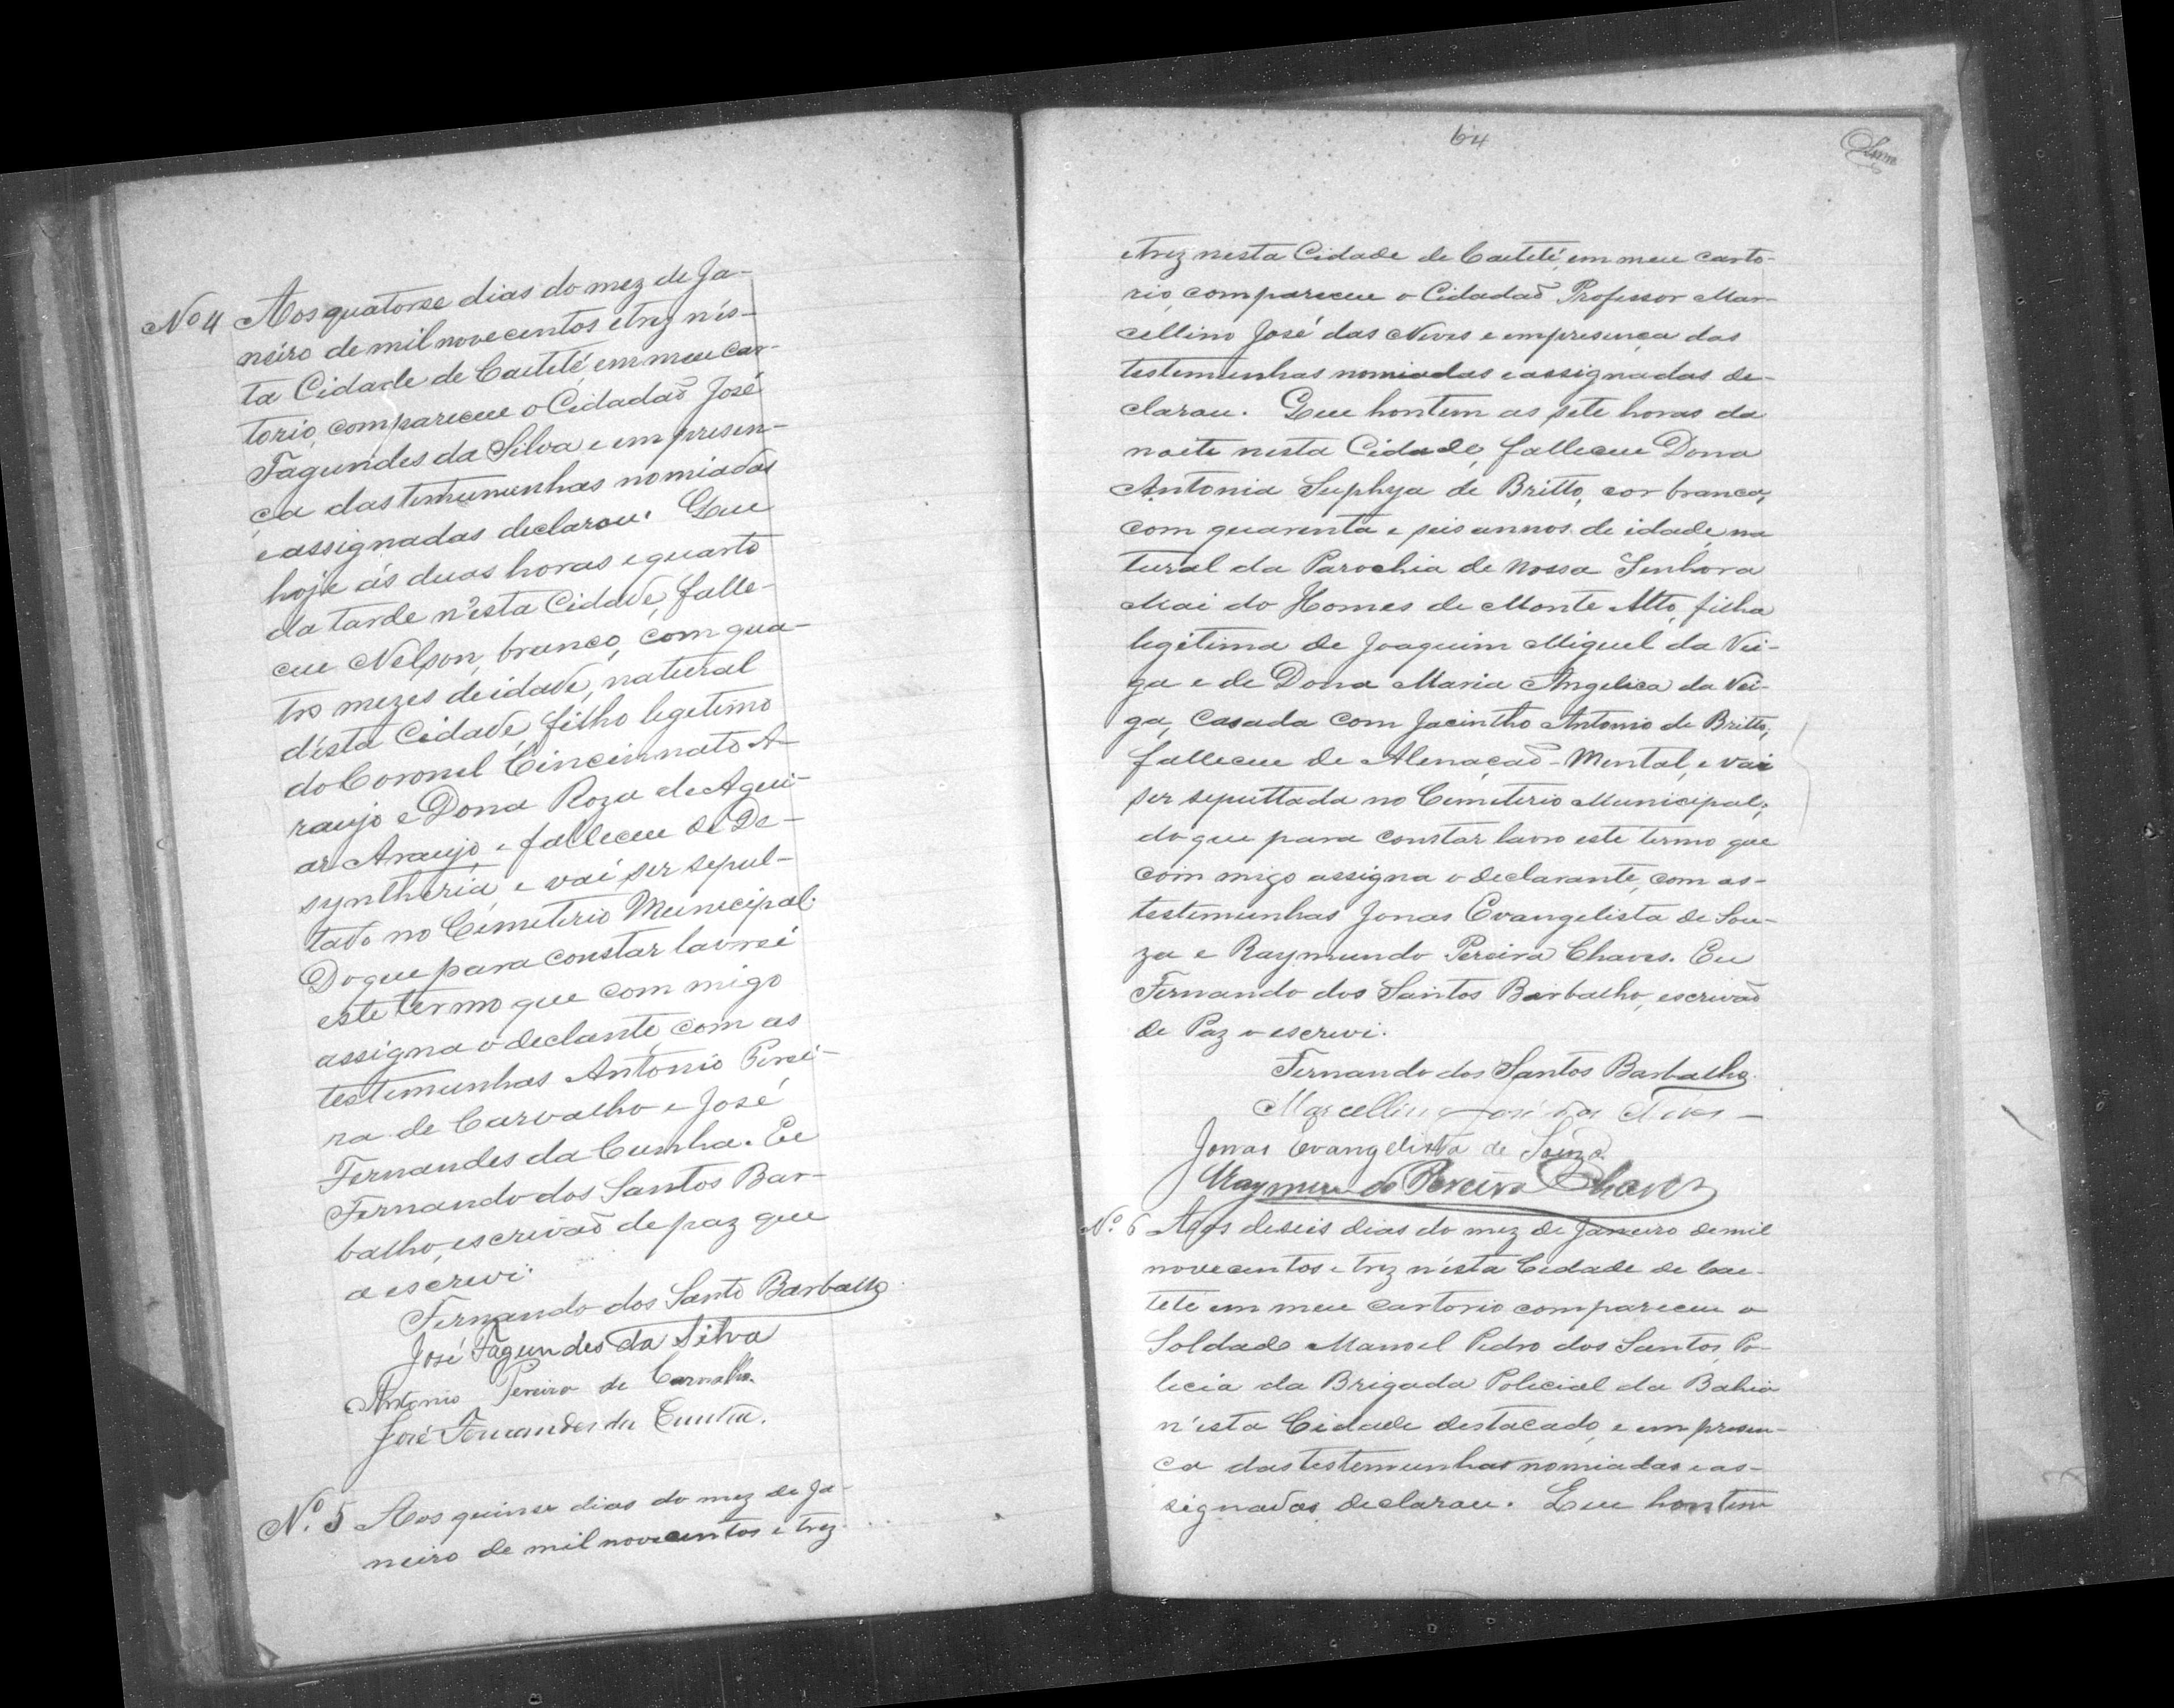 Nº 4 Aos quatorse dias do mez de Ja-
neiro de mil novecentos e trez n'es-
ta Cidade de Caetété em meu car-
torio, compareceu o Cidadaõ José
Fagundes da Silva e em presen-
ça das temununhas nomiadas
e assignadas declarou. Que
hoje ás duas horas e quarto
da tarde n'esta Cidade, falle-
ceu Nelson, branco, com qua-
tro mezes de idade, natural
d'esta Cidade, filho legetimo
do Coronel Cincinnato A-
raujo e Dona Roza de Agui-
ar Araujo e falleceu de De-
syntheria e vai ser sepul-
tado no Cemiterio Municipal.
Do que para constar lavrei
este termo que com migo
assigna o declante, com as
testemunhas Antonio Perei-
ra de Carvalho e José
Fernandes da Cunha. Eu
Fernando dos Santos Bar-
balho, escrivaõ de paz que
a escrevi.
Fernando dos Santo Barbalho
José Fagundes da Silva
Antonio Pereira de Carvalho.
José Fernandes da Cunha.
Nº. 5 Aos quinse dias do mez de Ja-
neiro de mil novecentos e trez
64
e trez nesta Cidade de Caetité, em meu carto-
rio, compareceu o Cidadaõ Professor Mar-
cellino José das Neves e em presença das
testemunhas nomiadas e assignadas de-
clarou. Que hontem as sete horas da
noite nesta Cidade, falleceu Dona
Antonia Suphya de Britto, cor branca,
com quarenta e seis annos de idade na
tural da Parochia de Nossa Senhora
Mai do Homes de Monte Alto, filha
legitima de Joaquim Miguel da Vei-
ga e de Dona Maria Angelica da Vei-
ga, Casada com Jacintho Antonio de Britto,
falleceu de Alenaçaõ-Mental, e vai
ser sepultada no Cemiterio Municipal;
do que para constar lavro este termo que
com migo assigna o declarante, com as-
testemunhas Jonas Evangelista de Sou-
za e Raymundo Pereira Chaves. Eu
Fernando dos Santos Barbalho, escrivaõ
de Paz o escrevi.
Fernando dos Santos Barbalho
Marcellino José das Neves
Jonas Evangelista de Souza.
Raymundo Pereira Chaves
Nº. 6 Aos deseis dias do mez de Janeiro de mil
novecentos e trez n'esta Cidade de Cae-
teté em meu cartorio compareceu o
Soldado Manoel Pedro dos Santos, Po-
licia da Brigada Policial da Bahia
n'esta Cidade destacado, e em presen-
ca das testemunhas nomiadas e as-
signadas declarou. Que hontem